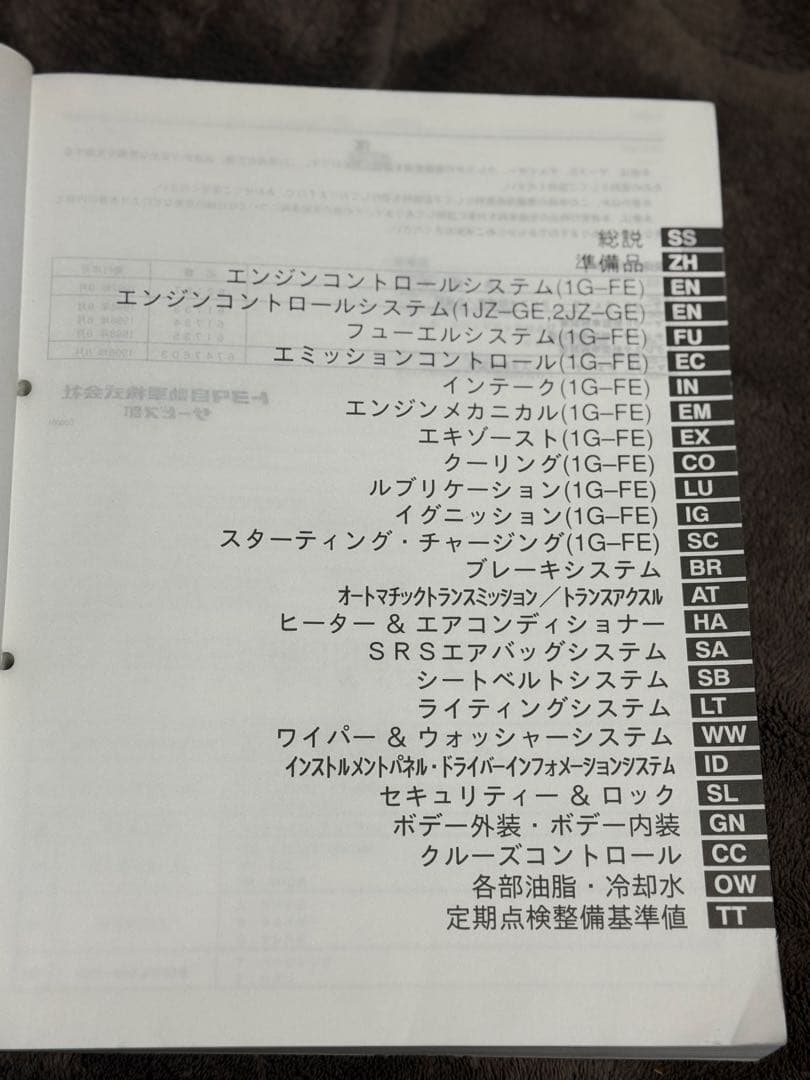 総説 SS
準備品 ZH
エンジンコントロールシステム(1G–FE) EN
エンジンコントロールシステム(1JZ–GE,2JZ–GE) EN
フューエルシステム(1G–FE) FU
エミッションコントロール(1G–FE) EC
インテーク(1G–FE) IN
エンジンメカニカル(1G–FE) EM
エキゾースト(1G–FE) EX
クーリング(1G–FE) CO
ルブリケーション(1G–FE) LU
イグニッション(1G–FE) IG
スターティング・チャージング(1G–FE) SC
ブレーキシステム BR
オートマチックトランスミッション／トランスアクスル AT
ヒーター & エアコンディショナー HA
ＳＲＳエアバッグシステム SA
シートベルトシステム SB
ライティングシステム LT
ワイパー & ウォッシャーシステム WW
インストルメントパネル・ドライバーインフォメーションシステム ID
セキュリティー & ロック SL
ボデー外装・ボデー内装 GN
クルーズコントロール CC
各部油脂・冷却水 OW
定期点検整備基準値 TT
トヨタ自動車株式会社
サービス部